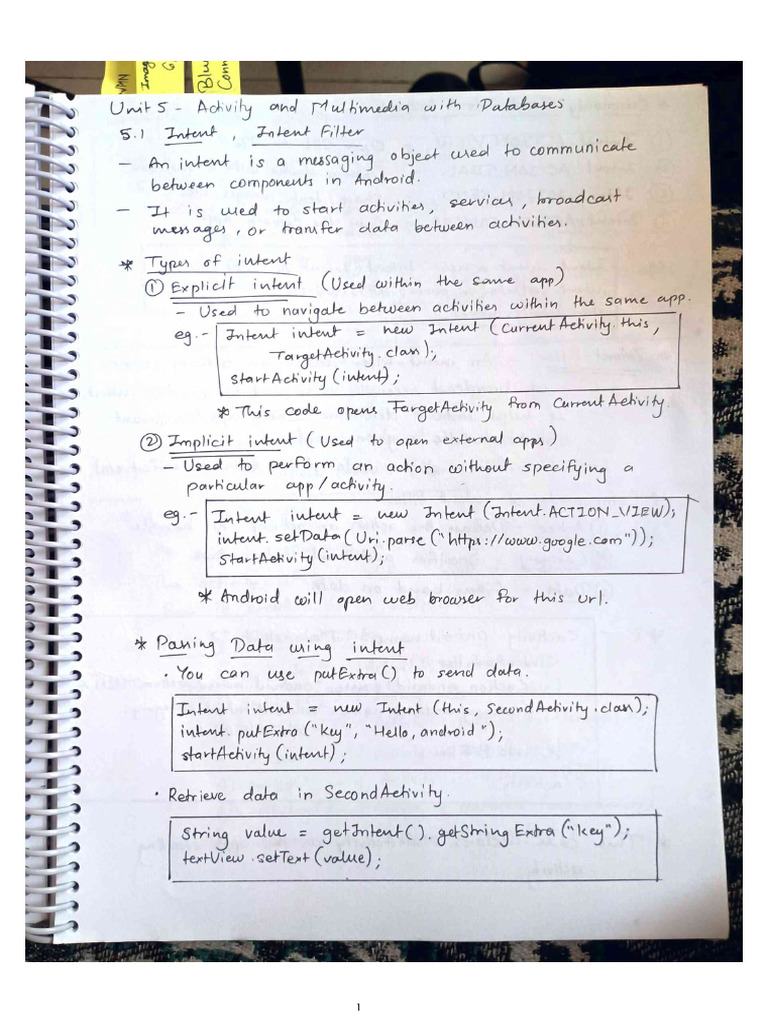 Unit 5 - Activity and Multimedia with Databases
5.1 Intent, Intent Filter
- An intent is a messaging object used to communicate
between components in Android.
- It is used to start activities, services, broadcast
messages, or transfer data between activities.
* Types of intent
① Explicit intent (Used within the same app)
- Used to navigate between activities within the same app.
eg.- Intent intent = new Intent (CurrentActivity.this,
TargetActivity.class);
startActivity(intent);
* This code opens TargetActivity from CurrentActivity.
② Implicit intent (Used to open external apps)
- Used to perform an action without specifying a
particular app/activity.
eg.- Intent intent = new Intent (Intent.ACTION_VIEW);
intent.setData(Uri.parse("https://www.google.com"));
startActivity(intent);
* Android will open web browser for this url.
* Passing Data using intent
• You can use putExtra() to send data.
Intent intent = new Intent (this, SecondActivity.class);
intent.putExtra("key", "Hello, android");
startActivity(intent);
• Retrieve data in SecondActivity.
String value = getIntent().getStringExtra("key");
textView.setText(value);
1